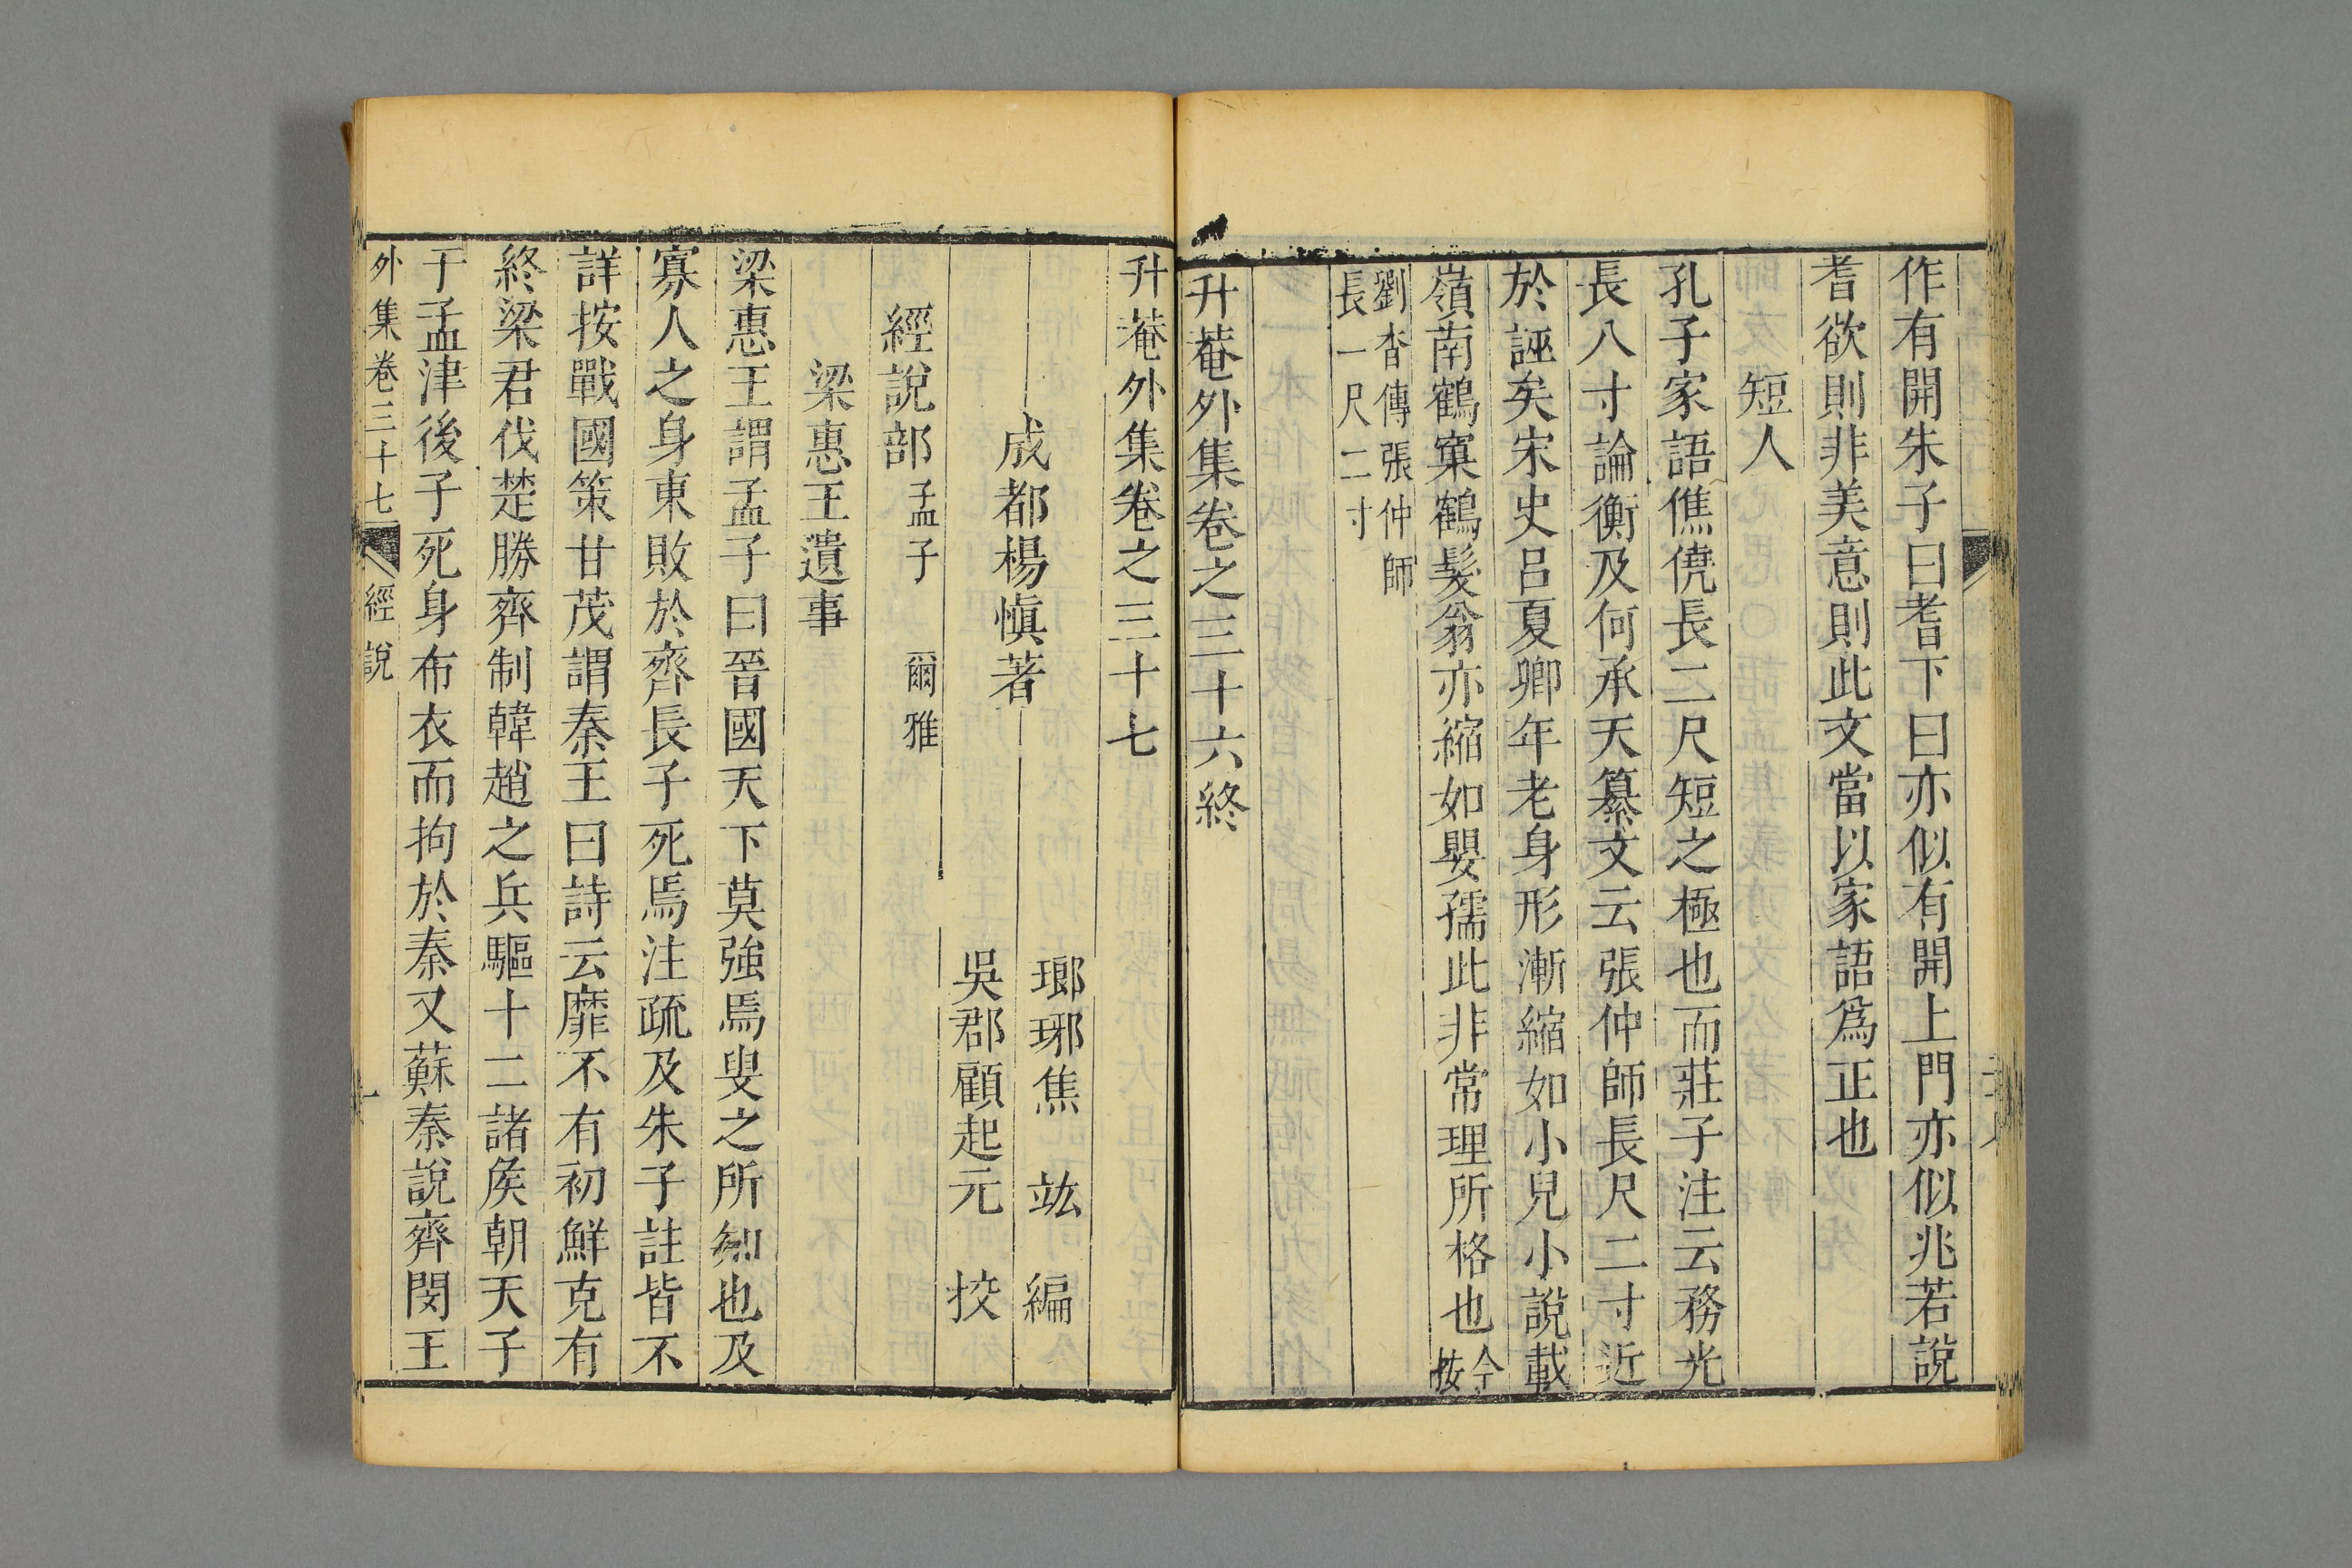 作有開朱子曰耆下曰亦似有開上門亦似兆若說
耆欲則非美意則此文當以家語爲正也
短人
孔子家語僬僥長二尺短之極也而莊子注云務光
長八寸論衡及何承天纂文云張仲師長尺二寸近
於誣矣宋史呂夏卿年老身形漸縮如小兒小說載
嶺南鶴窠鶴髮翁亦縮如嬰孺此非常理所格也今按
劉杳傳張仲師
長一尺二寸
升菴外集卷之三十六終
升菴外集卷之三十七
成都楊愼著
瑯琊焦竑編
吳郡顧起元校
經說部 孟子 爾雅
梁惠王遺事
梁惠王謂孟子曰晉國天下莫強焉叟之所知也及
寡人之身東敗於齊長子死焉注疏及朱子註皆不
詳按戰國策甘茂謂秦王曰詩云靡不有初鮮克有
終梁君伐楚勝齊制韓趙之兵驅十二諸侯朝天子
于孟津後子死身布衣而拘於秦又蘇秦說齊閔王
外集卷三十七 經說 一